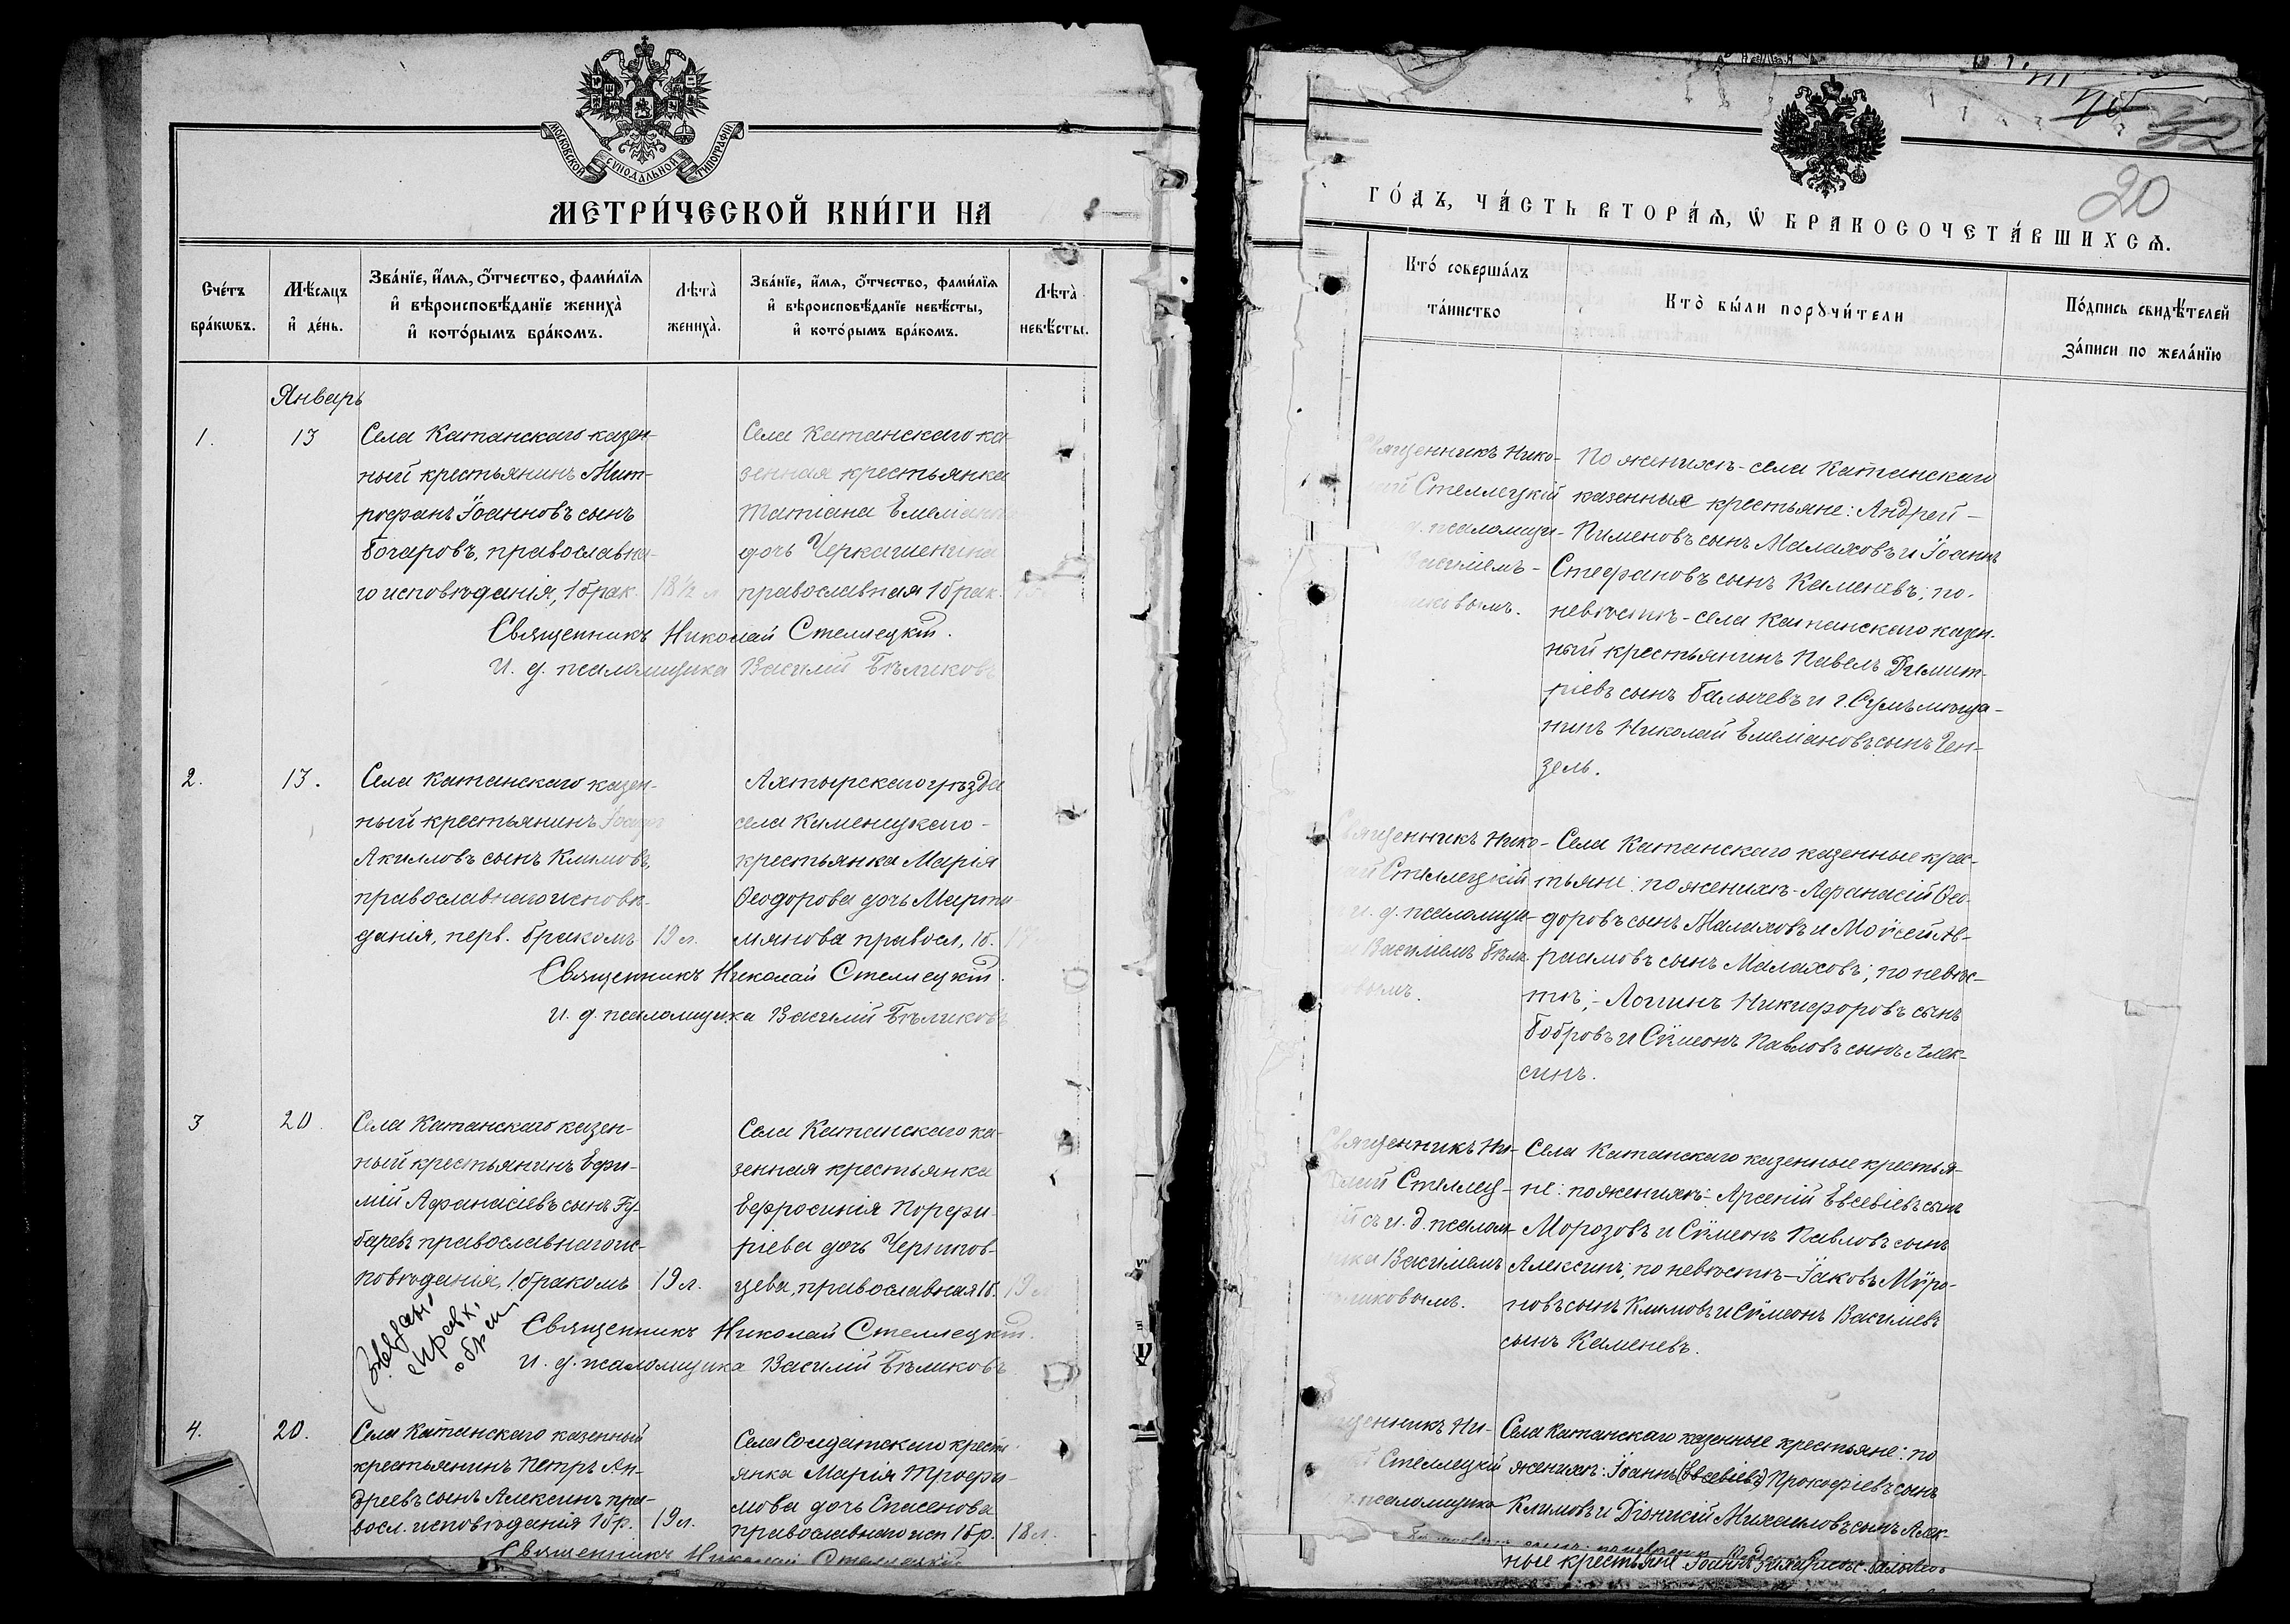 МОСКОВСКОЙ СѴНОДАЛЬНОЙ ТИПОГРАФІИ
МЕТРИ́ЧЕСКОЙ КНИ́ГИ НА
Сче́тъ бра́кωвъ.
Мѣ́сяцъ и҆ де́нь.
Зва́нїе, и҆́мѧ, ѻ҆́тчество, фами́лїѧ
и҆ вѣроисповѣ́данїе жениха̀
и҆ кото́рымъ бра́комъ.
Лѣта̀
жениха̀.
Зва́нїе, и҆́мѧ, ѻ҆́тчество, фами́лїѧ
и҆ вѣроисповѣ́данїе невѣ́сты,
и҆ кото́рымъ бра́комъ.
Лѣта̀
невѣ́сты.
Январь
1.
13
Села Катанскаго казен-
ный крестьянинъ Мит-
рофанъ Іоанновъ сынъ
Бочаровъ, православна-
го исповѣданія, 1 брак.
18½ л
Села Катанскаго ка-
зенная крестьянка
Татіана Емеліано
дочь Черкашенина
православная 1 брак.
Священникъ Николай Стеллецкій.
И. д. псаломщика Василій Бѣликовъ
2.
13.
Села Катанскаго казен-
ный крестьянинъ Іоаннъ
Акилловъ сынъ Климовъ,
православнаго исповѣ-
данія, перв. бракомъ
19 л.
Ахтырскаго уѣзда
села Каменецкаго-
крестьянка Марія
Ѳеодорова дочь Марти-
мянова правосл, 1 б.
Священникъ Николай Стеллецкій.
и. д. псаломщика Василій Бѣликовъ
3
20.
Села Катанскаго казен-
ный крестьянинъ Ефи-
мій Афанасіевъ сынъ Гу-
баревъ православнаго ис-
повѣданія, 1 бракомъ
19 л.
Села Катанскаго ка-
зенная крестьянка
Евфросинія Порфи-
ріева дочь Чернигов-
цева, православная 1 б.
19 л
справк.
Священникъ Николай Стеллецкій.
И. д. псаломщика Василій Бѣликовъ
4.
20.
Села Катанскаго казенный
крестьянинъ Петръ Ан-
дреевъ сынъ Алексинъ пра-
восл. исповѣданія 1 бр.
19 л.
Села Солдатскаго кресть-
янка Марія Трофи-
мова дочь Спасенова
православнаго исп 1 бр.
18 л.
Священникъ Николай Стеллецкій
20
ГО́ДЪ, ЧА́СТЬ ВТОРА́Ѧ, Ѽ БРАКОСОЧЕТА́ВШИХСѦ.
Кто́ соверша́лъ
та́инство
Кто̀ бы́ли порꙋчи́тели
По́дпись свидѣ́телей
за́писи по жела́нїю
Священникъ Нико-
лай Стеллецкій
д. псаломщи-
Василіемъ -
ликовымъ.
По женихѣ - села Катанскаго
казенные крестьяне: Андрей -
Пименовъ сынъ Малаховъ и Іоаннъ
Стефановъ сынъ Каменевъ; по-
невѣстѣ - села Катанскаго казен-
ный крестьянинъ Павелъ Димит-
ріевъ сынъ Балычевъ и г. Сумъ мѣща-
нинъ Николай Емеліановъ сынъ Ген-
зель.
Священникъ Нико-
лай Стеллецкій
и. д. псаломщи-
Василіемъ Бѣли-
ковымъ.
Села Катанскаго казенные крес-
тьяне: по женихѣ - Афанасій Ѳео-
доровъ сынъ Малаховъ и Моѵсей Ав-
раамовъ сынъ Малаховъ; по невѣс-
тѣ; - Логгинъ Никифоровъ сынъ
Бобровъ и Сѵмеонъ Павловъ сынъ Алек-
синъ.
Священникъ Ни-
колай Стеллец-
ій съ и. д. псалом-
щика Василіемъ
Бѣликовымъ.
Села Катанскаго казенные крестья-
не: по женихѣ: - Арсеній Евсевіевъ сынъ
Морозовъ и Сѵмеонъ Павловъ сынъ
Алексинъ; по невѣстѣ - Іаковъ Мѵро-
новъ сынъ Климовъ и Сѵмеонъ Василіевъ
сынъ Каменевъ.
Священникъ Ни-
Стеллецкій
псаломщика
Села Катанскаго казенные крестьяне: по
женихѣ: Іоаннъ (Евсевіевъ) Прокофіевъ сынъ
Климовъ и Діонисій Михаиловъ сынъ Алек-
ные крестьяне Іоаннъ